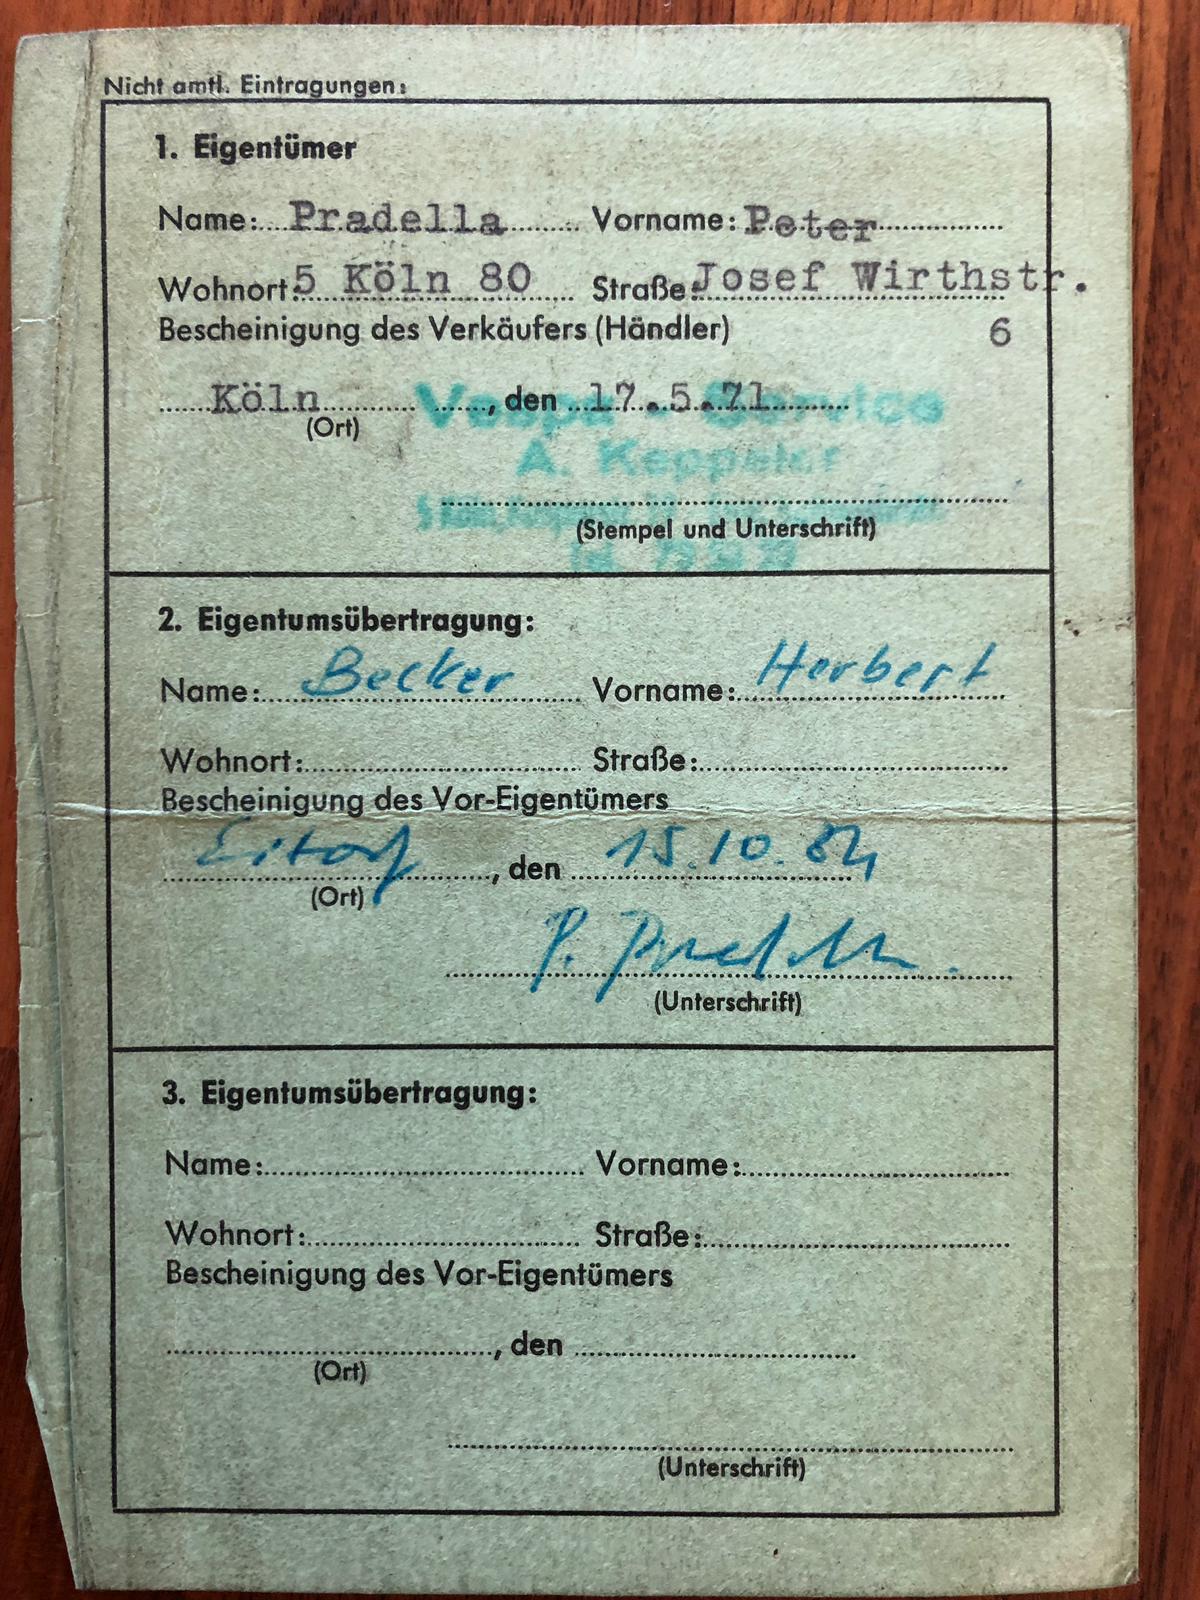 Nicht amtl. Eintragungen:
1. Eigentümer
Name: Pradella Vorname: Peter
Wohnort: 5 Köln 80 Straße: Josef Wirthstr.
Bescheinigung des Verkäufers (Händler) 6
Köln , den 17.5.71
(Ort)
Vespa - Service
A. Keppeler
(Stempel und Unterschrift)
2. Eigentumsübertragung:
Name: Becker Vorname: Herbert
Wohnort: Straße:
Bescheinigung des Vor-Eigentümers
Eitorf , den 15.10.84
(Ort)
P. Pradella
(Unterschrift)
3. Eigentumsübertragung:
Name: Vorname:
Wohnort: Straße:
Bescheinigung des Vor-Eigentümers
, den
(Ort)
(Unterschrift)